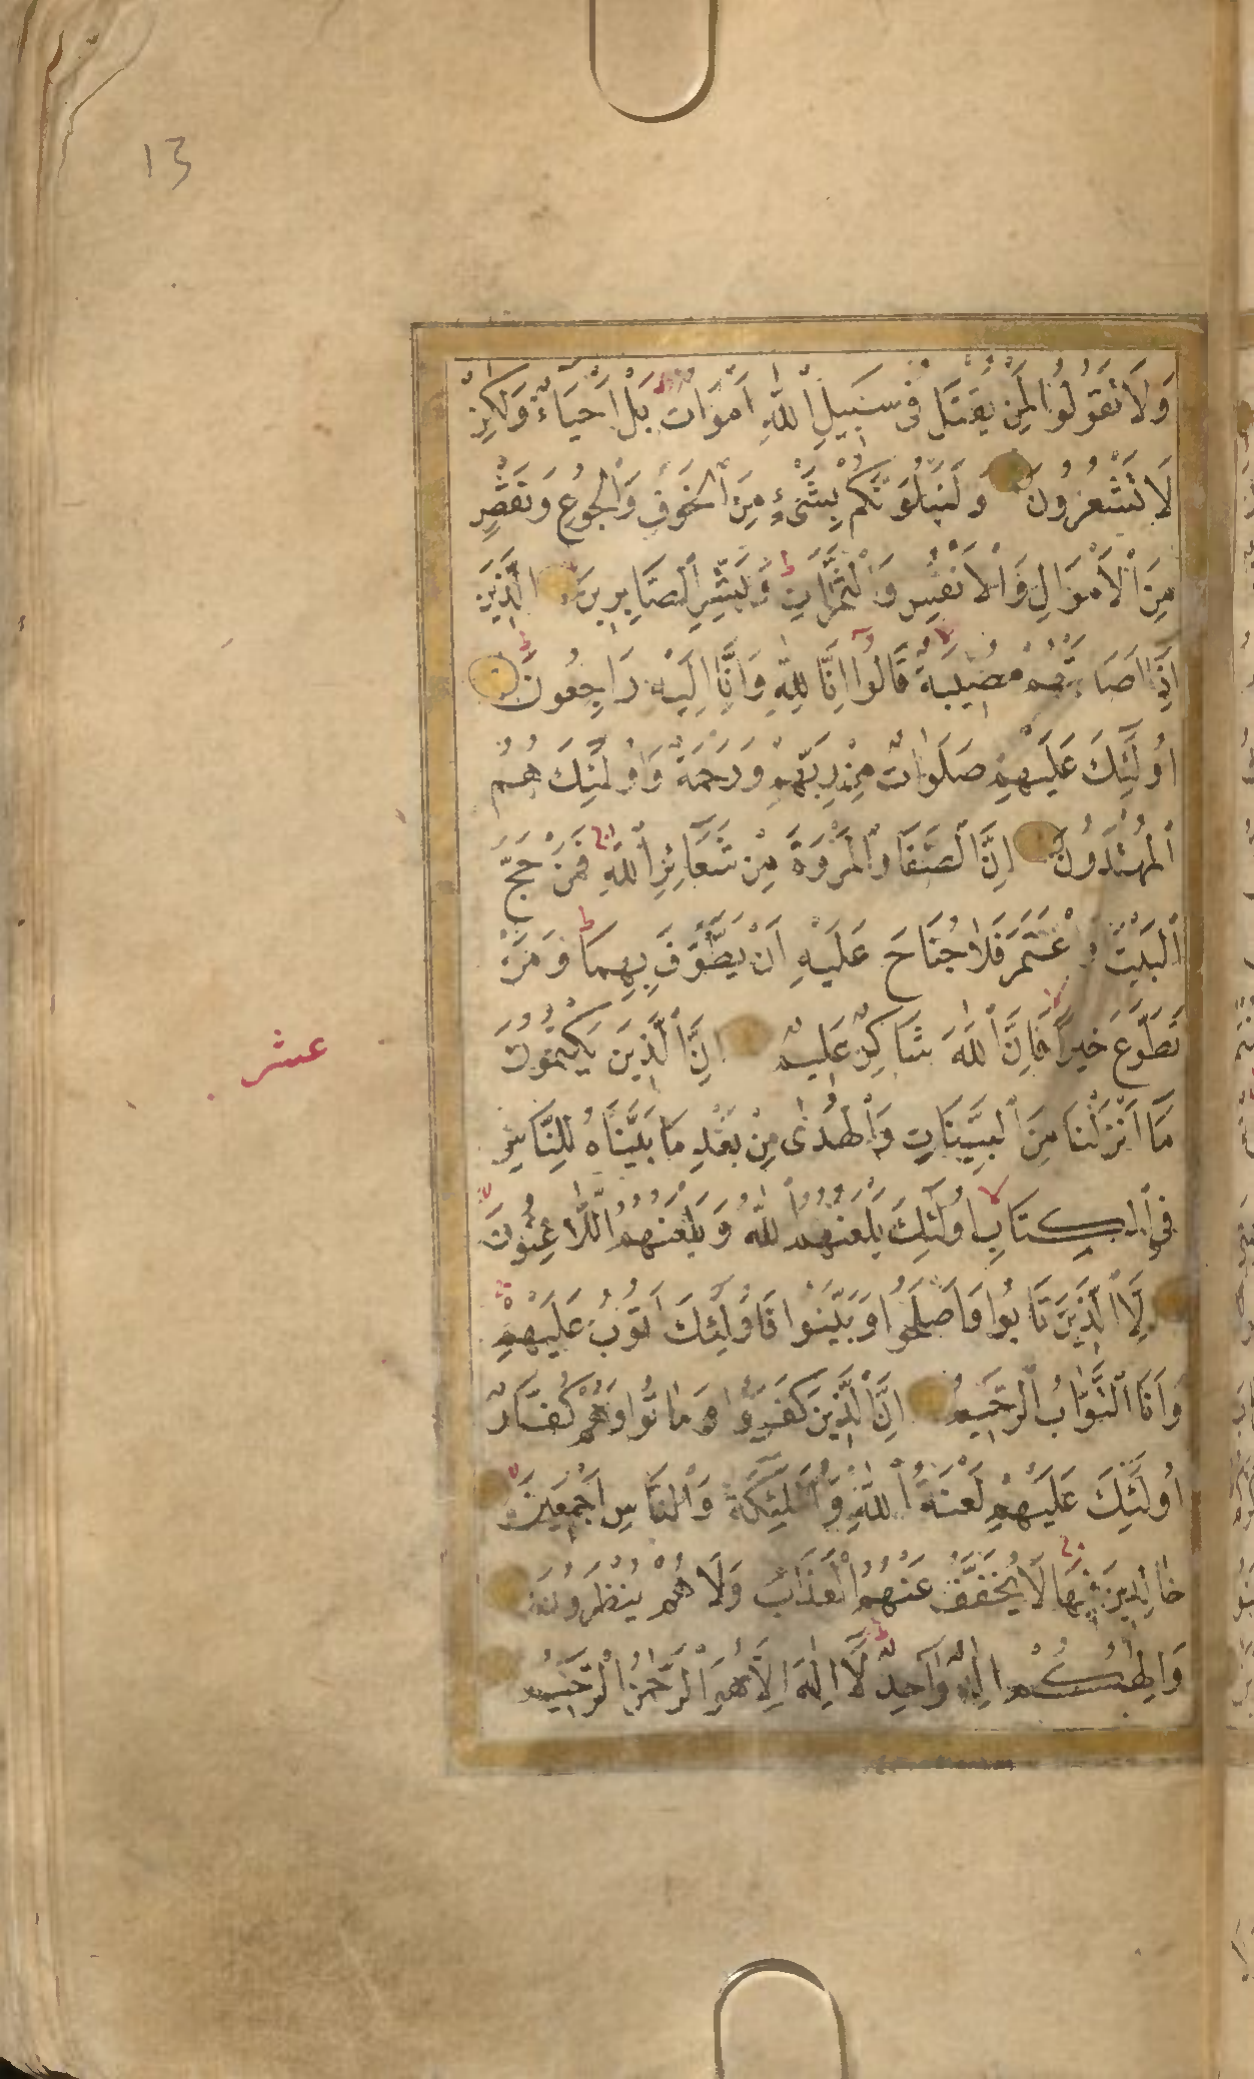 13
وَلَا تَقُولُوا لِمَنْ يُقْتَلُ فِي سَبِيلِ اللّٰهِ اَمْوَاتٌ بَلْ اَحْيَاءٌ وَلٰكِنْ
لَا تَشْعُرُونَ وَلَنَبْلُوَنَّكُمْ بِشَيْءٍ مِنَ الْخَوْفِ وَالْجُوعِ وَنَقْصٍ
مِنَ الْاَمْوَالِ وَالْاَنْفُسِ وَالثَّمَرَاتِ وَبَشِّرِ الصَّابِرِينَ الَّذِينَ
اِذَا اَصَابَتْهُمْ مُصِيبَةٌ قَالُوا اِنَّا لِلّٰهِ وَاِنَّا اِلَيْهِ رَاجِعُونَ
اُولٰئِكَ عَلَيْهِمْ صَلَوَاتٌ مِنْ رَبِّهِمْ وَرَحْمَةٌ وَاُولٰئِكَ هُمُ
الْمُهْتَدُونَ اِنَّ الصَّفَا وَالْمَرْوَةَ مِنْ شَعَائِرِ اللّٰهِ فَمَنْ حَجَّ
الْبَيْتَ اَوِ اعْتَمَرَ فَلَا جُنَاحَ عَلَيْهِ اَنْ يَطَّوَّفَ بِهِمَا وَمَنْ
تَطَوَّعَ خَيْرًا فَاِنَّ اللّٰهَ شَاكِرٌ عَلِيمٌ اِنَّ الَّذِينَ يَكْتُمُونَ
عشر
مَا اَنْزَلْنَا مِنَ الْبَيِّنَاتِ وَالْهُدٰى مِنْ بَعْدِ مَا بَيَّنَّاهُ لِلنَّاسِ
فِي الْكِتَابِ اُولٰئِكَ يَلْعَنُهُمُ اللّٰهُ وَيَلْعَنُهُمُ اللَّاعِنُونَ
اِلَّا الَّذِينَ تَابُوا وَاَصْلَحُوا وَبَيَّنُوا فَاُولٰئِكَ اَتُوبُ عَلَيْهِمْ
وَاَنَا التَّوَّابُ الرَّحِيمُ اِنَّ الَّذِينَ كَفَرُوا وَمَاتُوا وَهُمْ كُفَّارٌ
اُولٰئِكَ عَلَيْهِمْ لَعْنَةُ اللّٰهِ وَالْمَلٰئِكَةِ وَالنَّاسِ اَجْمَعِينَ
خَالِدِينَ فِيهَا لَا يُخَفَّفُ عَنْهُمُ الْعَذَابُ وَلَا هُمْ يُنْظَرُونَ
وَاِلٰهُكُمْ اِلٰهٌ وَاحِدٌ لَا اِلٰهَ اِلَّا هُوَ الرَّحْمٰنُ الرَّحِيمُ